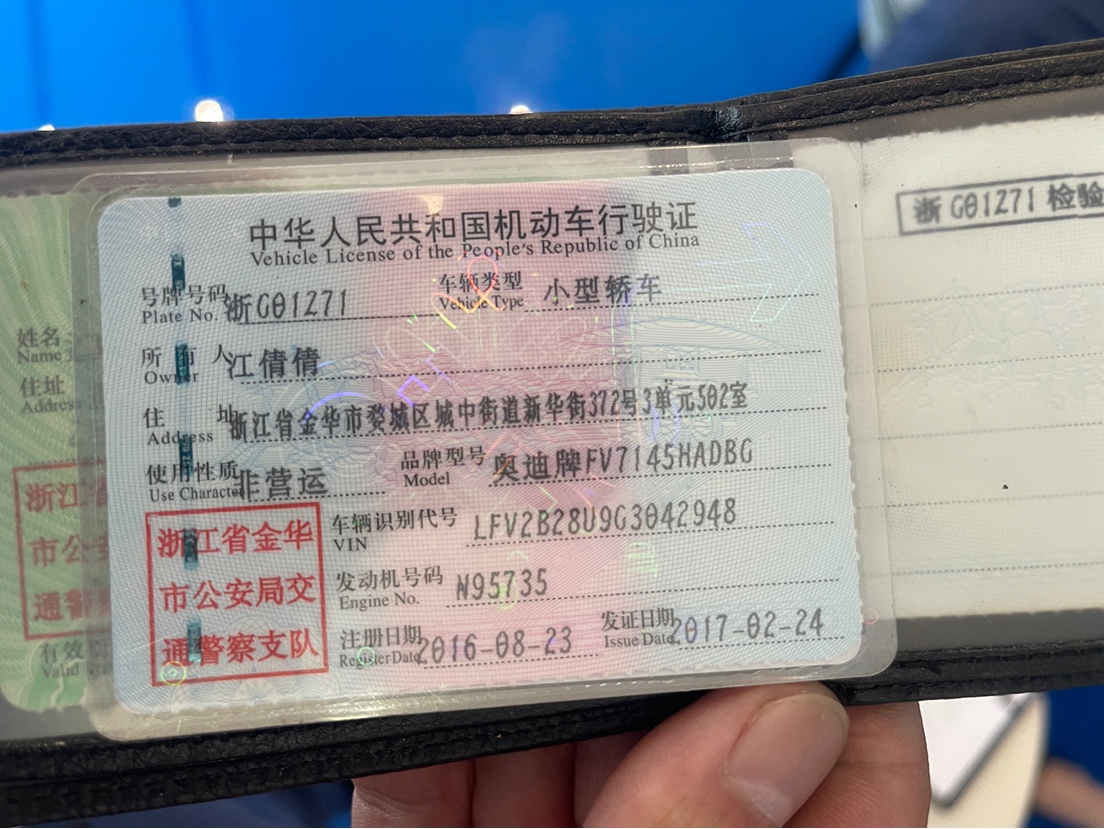 中华人民共和国机动车行驶证
Vehicle License of the People's Republic of China
号牌号码 浙G01Z71 车辆类型 小型轿车
Plate No. Vehicle Type
所有人 江倩倩
Owner
住址 浙江省金华市婺城区城中街道新华街372号3单元502室
Address
使用性质 非营运 品牌型号 奥迪牌FV7145HADBG
Use Character Model
浙江省金华
市公安局交
通警察支队
车辆识别代号 LFV2B28U9G3042948
VIN
发动机号码 N95735
Engine No.
注册日期 2016-08-23 发证日期 2017-02-24
Register Date Issue Date
浙G01Z71 检验
姓名
Name
住址
Address
浙江
市公
通警
有效
Valid